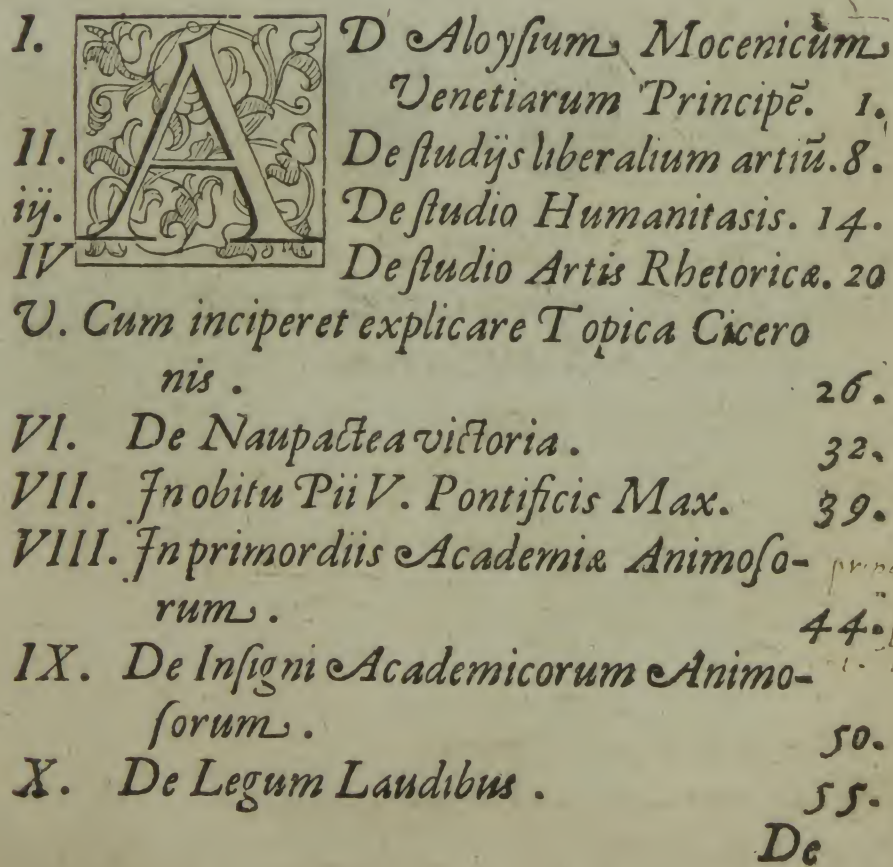 I. AD Aloyſium Mocenicùm
Venetiarum Principē. 1.
II. De ſtudijs liberalium artiū. 8.
iij. De ſtudio Humanitasis. 14.
IV De ſtudio Artis Rhetoricæ. 20
V. Cum inciperet explicare Topica Cicero
nis . 26.
VI. De Naupactea victoria . 32.
VII. In obitu Pii V. Pontificis Max. 39.
VIII. In primordiis Academiæ Animoſo-
rum . 44.
IX. De Inſigni Academicorum Animo-
ſorum . 50.
X. De Legum Laudibus . 55.
De